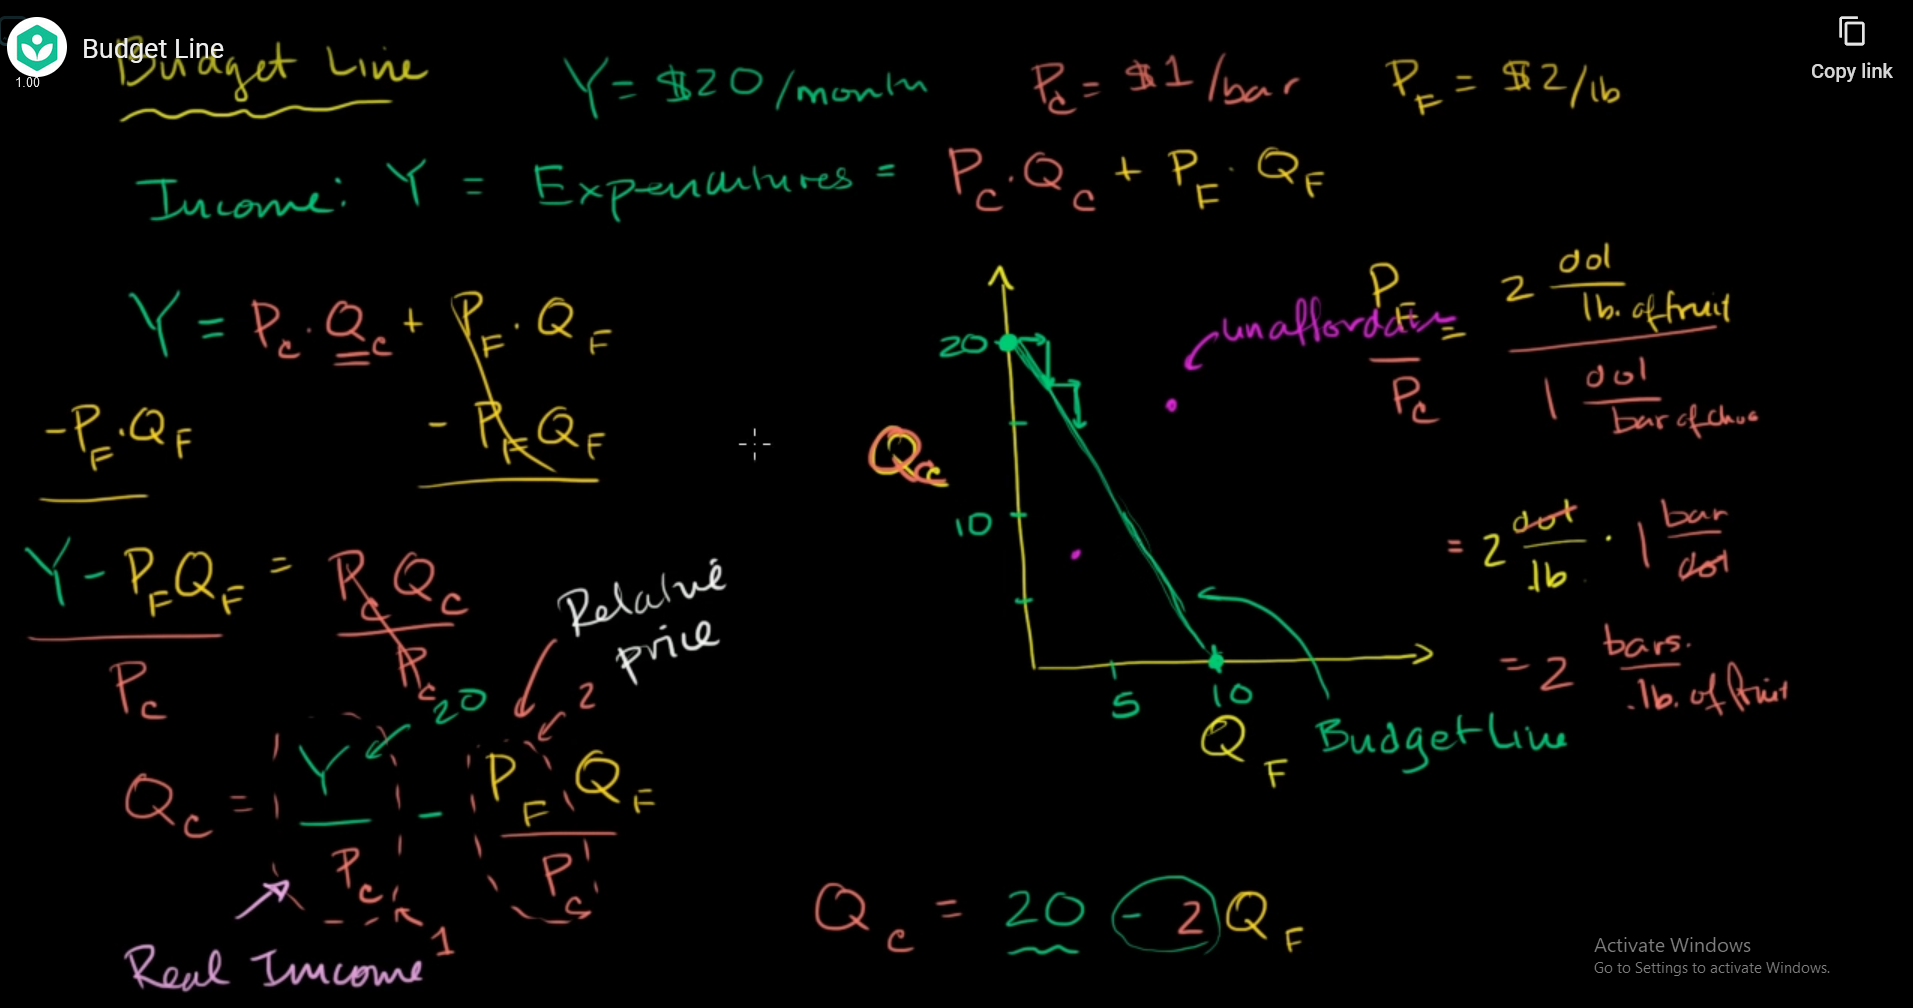 Budget Line
1.00
Copy link
Budget Line
Y = $20/month
P_C = $1/bar
P_F = $2/lb
Income: Y = Expenditures = P_C · Q_C + P_F · Q_F
Y = P_C · Q_C + P_F · Q_F
-P_F · Q_F - P_F Q_F
Y - P_F Q_F = P_C Q_C
P_C P_C
Relative
price
20
2
Q_C = Y - P_F Q_F
P_C P_C
1
Real Income
20
10
Q_C
5
10
Q_F
unaffordable
Budget Line
P_F = 2 dol
lb. of fruit
P_C 1 dol
bar of choc
= 2 dol · 1 bar
lb dol
= 2 bars
lb. of fruit
Q_C = 20 - 2 Q_F
Activate Windows
Go to Settings to activate Windows.